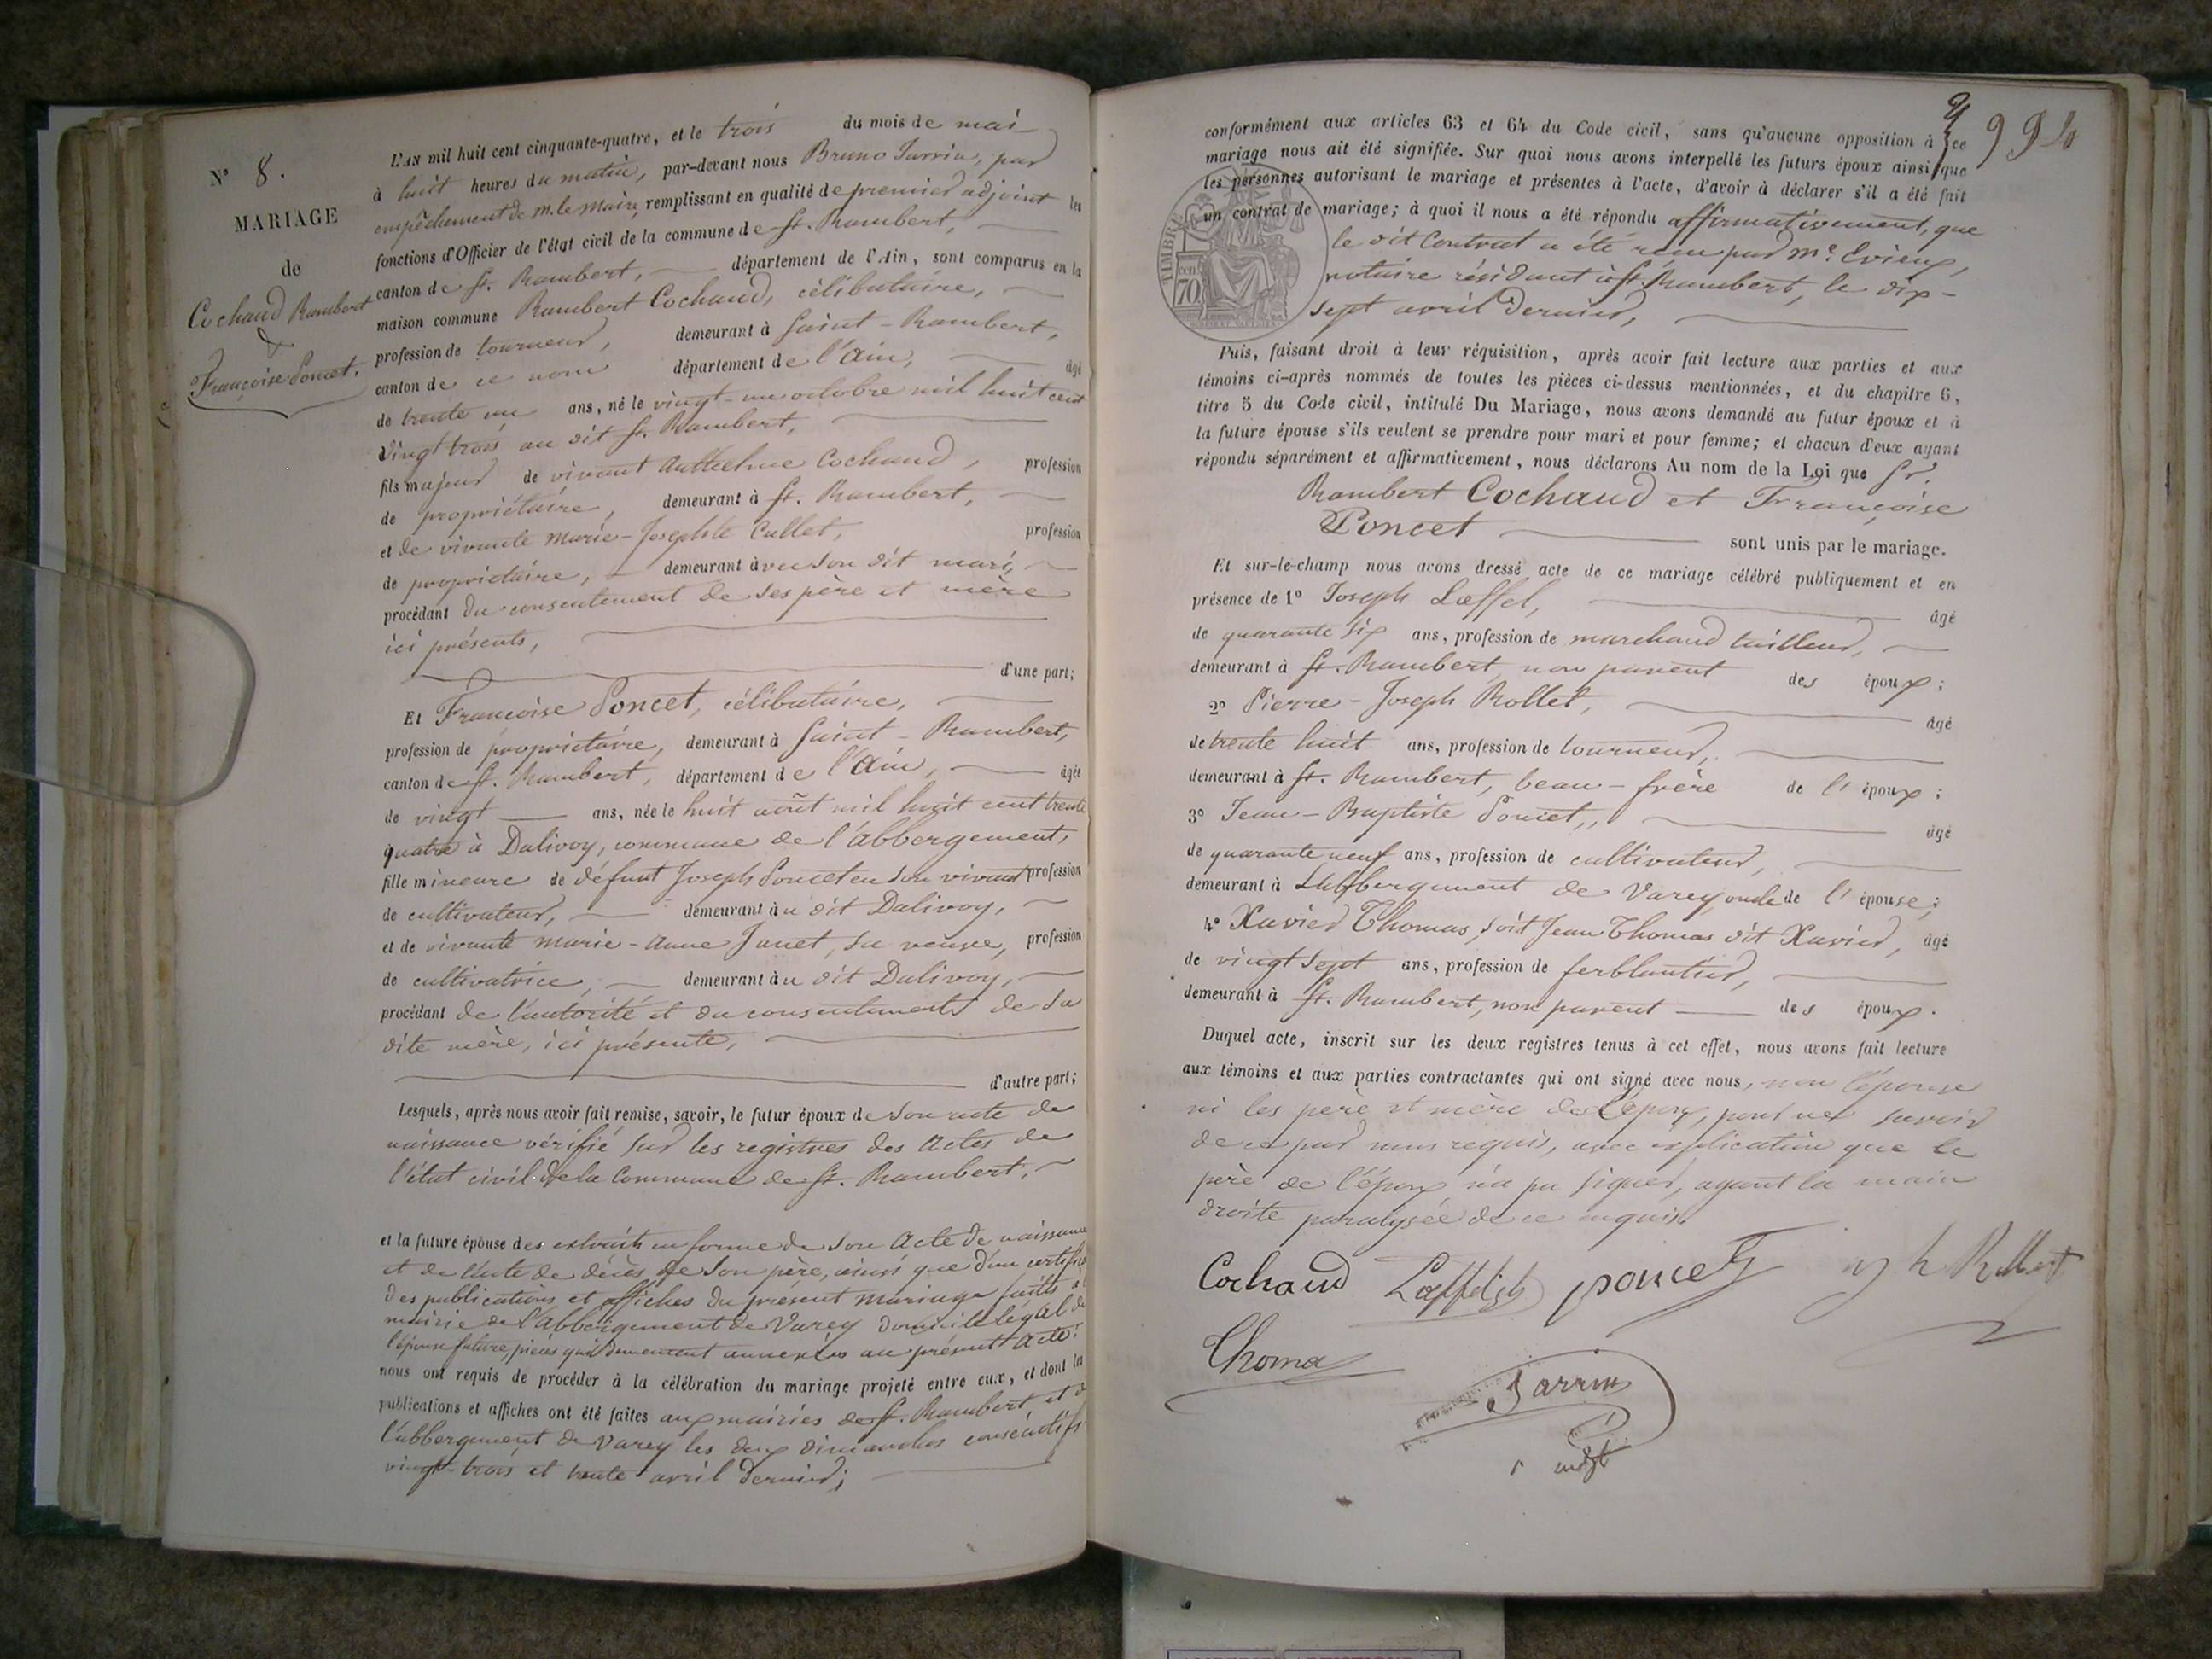 N° 8.
MARIAGE
de
Cochaud Rambert
&
Françoise Poncet.
L'AN mil huit cent cinquante-quatre, et le trois du mois de mai
à huit heures du matin, par-devant nous Bruno Sarrin, par
empêchement de M. le Maire, remplissant en qualité de premier adjoint les
fonctions d'Officier de l'état civil de la commune de St. Rambert,
canton de St. Rambert, département de l'Ain, sont comparus en la
maison commune Rambert Cochaud, célibataire,
profession de tourneur, demeurant à Saint-Rambert,
canton de ce nom département de l'Ain, âgé
de trente un ans, né le vingt-un octobre mil huit cent
vingt trois au dit St. Rambert,
fils majeur de vivant Anthelme Cochaud, profession
de propriétaire, demeurant à St. Rambert,
et de vivante Marie-Josephte Cullet, profession
de propriétaire, demeurant à vu son dit mari,
procédant du consentement de ses père et mère
ici présents,
d'une part;
Et Françoise Poncet, célibataire,
profession de propriétaire, demeurant à Saint-Rambert,
canton de St. Rambert, département de l'Ain, âgée
de vingt ans, née le huit août mil huit cent trente
quatre à Dalivoy, commune de l'abbergement,
fille mineure de défunt Joseph Poncet en son vivant profession
de cultivateur, demeurant à u dit Dalivoy,
et de vivante Marie-Anne Janet, sa veuve, profession
de cultivatrice, demeurant à u dit Dalivoy,
procédant de l'autorité et du consentement de sa
dite mère, ici présente,
d'autre part;
Lesquels, après nous avoir fait remise, savoir, le futur époux de son acte de
naissance vérifié sur les registres des Actes de
l'état civil de la Commune de St. Rambert,
et la future épouse des extraits en forme de son Acte de naissance
et de l'acte de décès de son père, ainsi que d'un certificat
des publications et affiches du présent mariage faites à
mairie de l'abbergement de Varey domicile légal de
l'épouse future, pièces qui demeurent annexées au présent Acte:
nous ont requis de procéder à la célébration du mariage projeté entre eux, et dont les
publications et affiches ont été faites aux mairies de St. Rambert, et de
l'abbergement de Varey les deux dimanches consécutifs
vingt-trois et trente avril dernier;
994
conformément aux articles 63 et 64 du Code civil, sans qu'aucune opposition à ce
mariage nous ait été signifiée. Sur quoi nous avons interpellé les futurs époux ainsi que
les personnes autorisant le mariage et présentes à l'acte, d'avoir à déclarer s'il a été fait
un contrat de mariage; à quoi il nous a été répondu affirmativement, que
le dit Contrat a été reçu par Me. Evieux,
notaire résidant à St. Rambert, le dix-
sept avril dernier,
TIMBRE
cen
70
Puis, faisant droit à leur réquisition, après avoir fait lecture aux parties et aux
témoins ci-après nommés de toutes les pièces ci-dessus mentionnées, et du chapitre 6,
titre 5 du Code civil, intitulé Du Mariage, nous avons demandé au futur époux et à
la future épouse s'ils veulent se prendre pour mari et pour femme; et chacun d'eux ayant
répondu séparément et affirmativement, nous déclarons Au nom de la Loi que Sr.
Rambert Cochaud et Françoise
Poncet sont unis par le mariage.
Et sur-le-champ nous avons dressé acte de ce mariage célébré publiquement et en
présence de 1° Joseph Lœffel, âgé
de quarante six ans, profession de marchand tailleur,
demeurant à St. Rambert, non parent des époux;
2° Pierre-Joseph Rollet, âgé
de trente huit ans, profession de tourneur,
demeurant à St. Rambert, beau-frère de l' époux;
3° Jean-Baptiste Poncet, âgé
de quarante neuf ans, profession de cultivateur,
demeurant à L'abbergement de Varey, oncle de l' épouse;
4° Xavier Thomas, soit Jean Thomas dit Xavier, âgé
de vingt sept ans, profession de ferblantier,
demeurant à St. Rambert, non parent des époux.
Duquel acte, inscrit sur les deux registres tenus à cet effet, nous avons fait lecture
aux témoins et aux parties contractantes qui ont signé avec nous, non l'épouse
ni les père et mère de l'époux, pour ne savoir
de ce par nous requis, avec explication que le
père de l'époux n'a pu signer, ayant la main
droite paralysée de ce requis.
Cochaud Lœffel poncet Rollet
Thomas
Sarrin
adjt